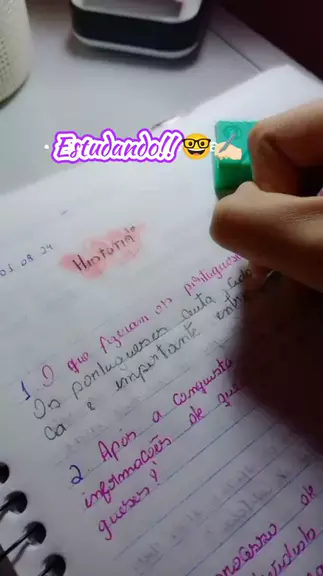 Estudando!!
03 08 24
História
1. O que fizeram os portugueses
Os portugueses
Ca e importante entre
2. Após a conquista
informações de que
gueses?
processo de